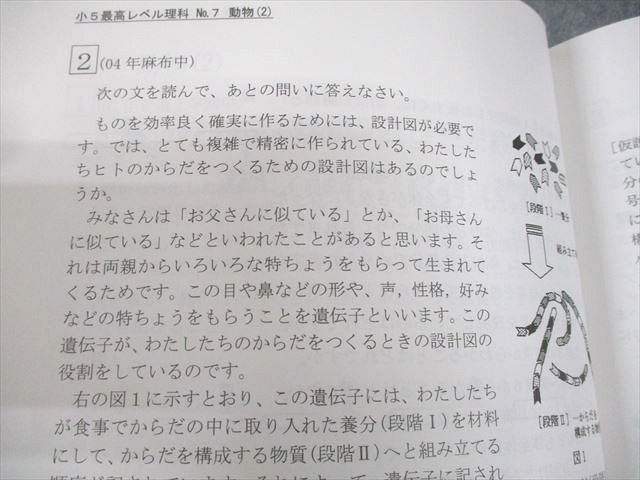 小５最高レベル理科 No.7 動物(2)
2 (04年麻布中)
次の文を読んで、あとの問いに答えなさい。
ものを効率良く確実に作るためには、設計図が必要で
す。では、とても複雑で精密に作られている、わたした
ちヒトのからだをつくるための設計図はあるのでしょ
うか。
みなさんは「お父さんに似ている」とか、「お母さん
に似ている」などといわれたことがあると思います。そ
れは両親からいろいろな特ちょうをもらって生まれて
くるためです。この目や鼻などの形や、声，性格，好み
などの特ちょうをもらうことを遺伝子といいます。この
遺伝子が、わたしたちのからだをつくるときの設計図の
役割をしているのです。
右の図１に示すとおり、この遺伝子には、わたしたち
が食事でからだの中に取り入れた養分(段階Ⅰ)を材料
にして、からだを構成する物質(段階Ⅱ)へと組み立てる
[段階Ⅰ]―養分
組み立て
[段階Ⅱ]―からだを
構成する物
図1